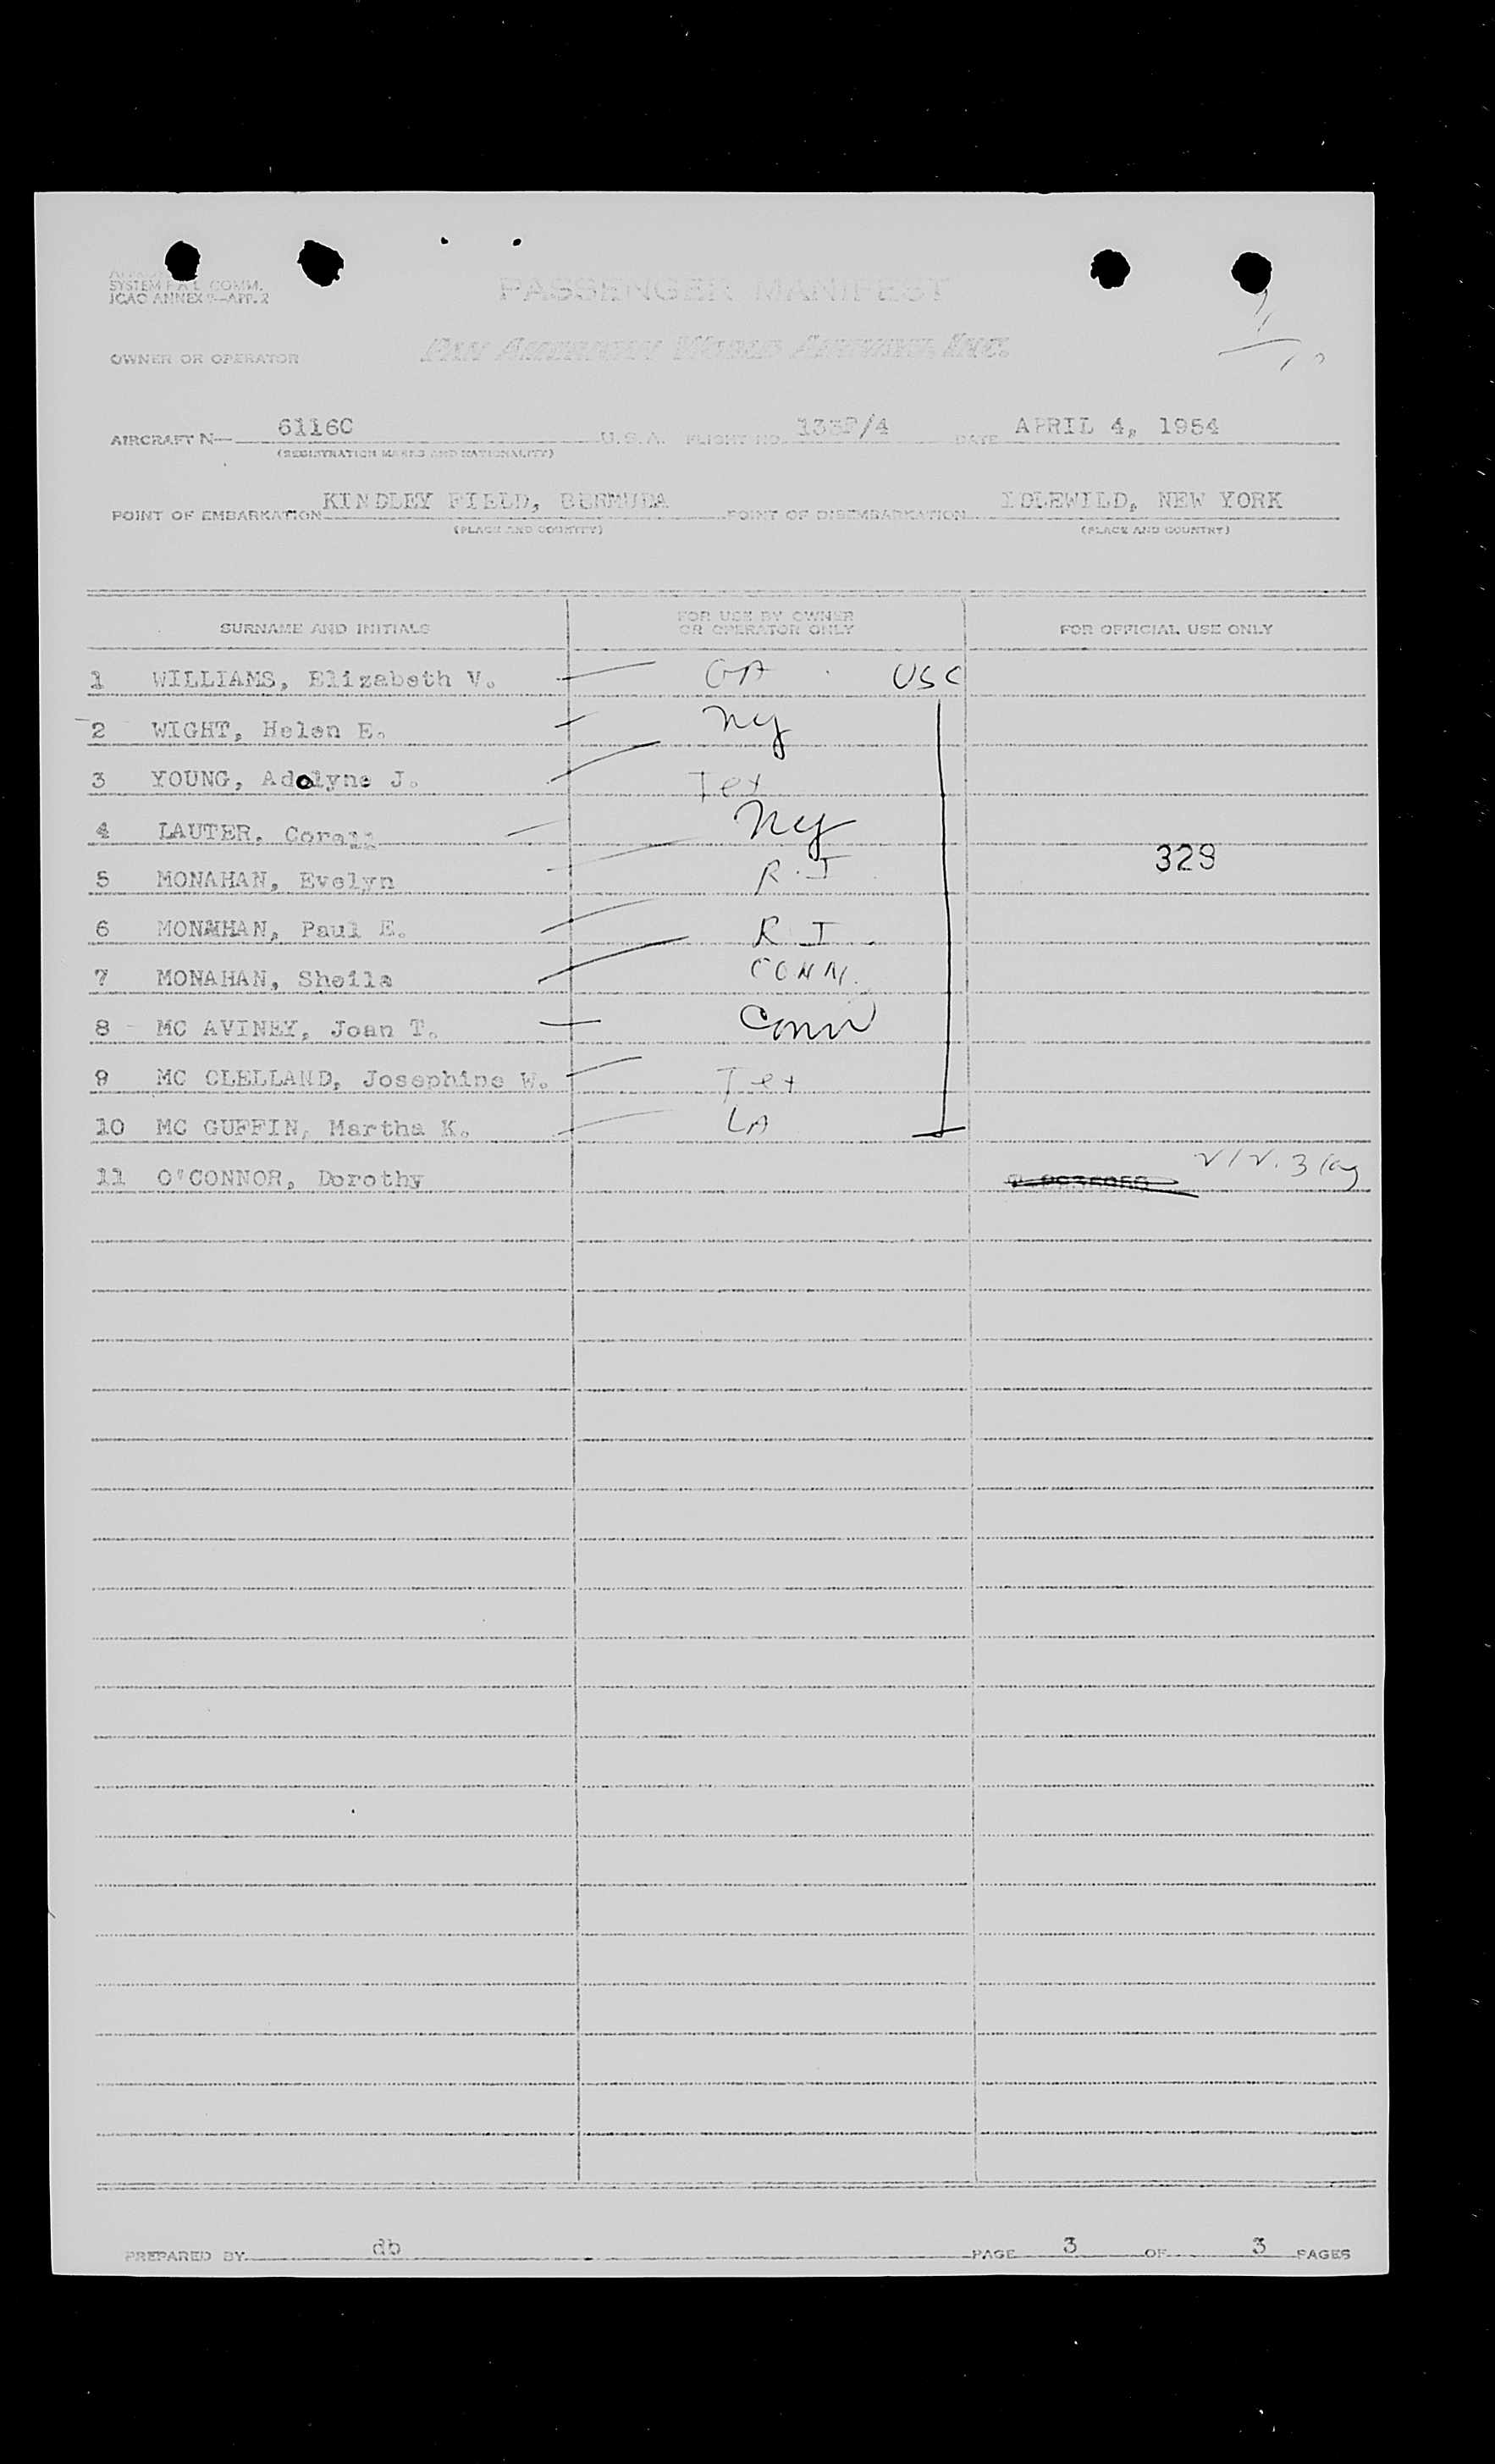 SYSTEM F.A.L. COMM.
ICAO ANNEX 9—APP. 2
PASSENGER MANIFEST
OWNER OR OPERATOR PAN AMERICAN WORLD AIRWAYS, INC.
AIRCRAFT N— 6116C U.S.A. FLIGHT NO. DATE APRIL 4, 1954
(REGISTRATION MARKS AND NATIONALITY)
POINT OF EMBARKATION KINDLEY FIELD, BERMUDA POINT OF DISEMBARKATION IDLEWILD, NEW YORK
(PLACE AND COUNTRY) (PLACE AND COUNTRY)
SURNAME AND INITIALS FOR USE BY OWNER OR OPERATOR ONLY FOR OFFICIAL USE ONLY
1 WILLIAMS, Elizabeth V. GA USC
2 WIGHT, Helen E. NY
3 YOUNG, Adolyne J. Tex
4 LAUTER, NY
329
5 MONAHAN, Evelyn R.I
6 MONAHAN, Paul E. R I
7 MONAHAN, Sheila CONN.
8 MC AVINEY, Joan T. Conn
9 MC CLELLAND, Josephine W. Tex
10 MC GUFFIN, Martha K. LA
11 O'CONNOR, Dorothy
PREPARED BY db PAGE 3 OF 3 PAGES